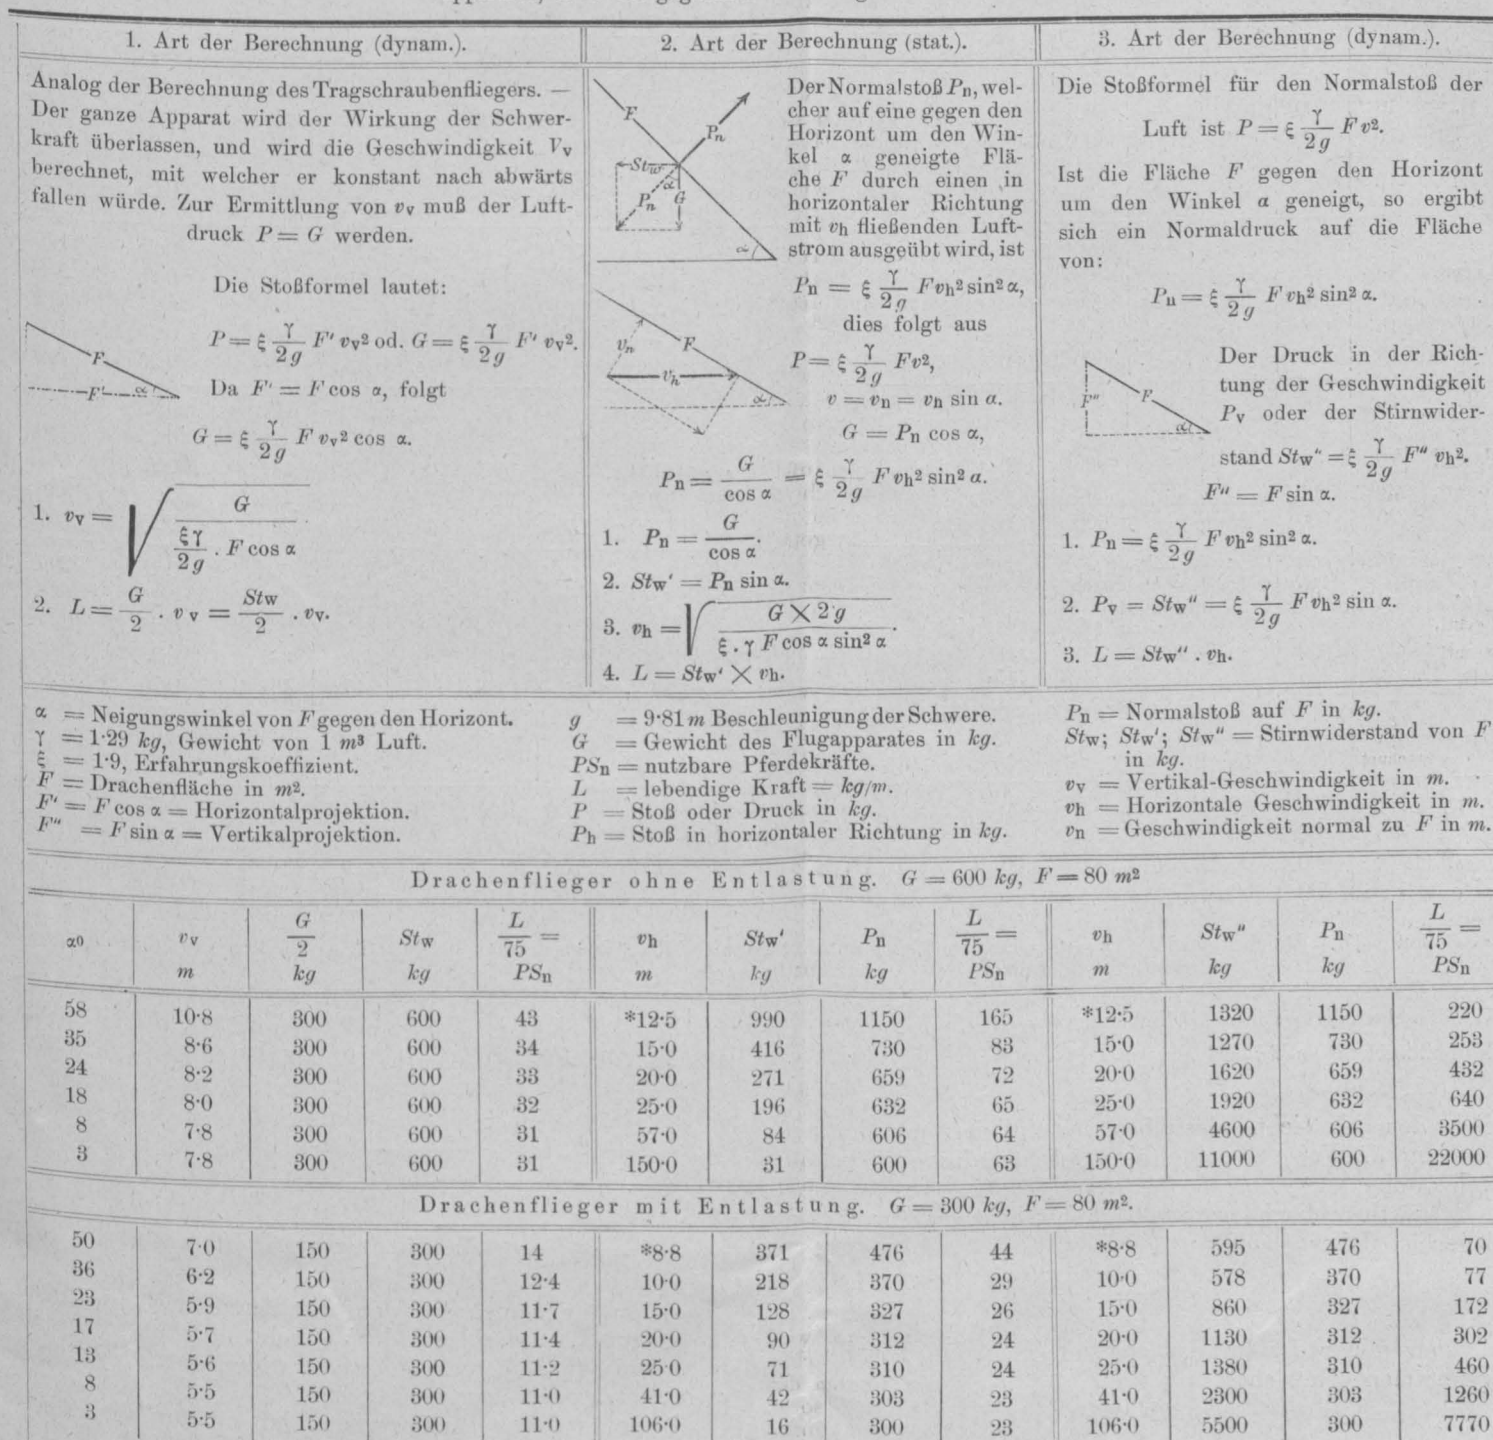 1. Art der Berechnung (dynam.).
Analog der Berechnung des Tragschraubenfliegers. —
Der ganze Apparat wird der Wirkung der Schwer-
kraft überlassen, und wird die Geschwindigkeit Vv
berechnet, mit welcher er konstant nach abwärts
fallen würde. Zur Ermittlung von vv muß der Luft-
druck P = G werden.
Die Stoßformel lautet:
P = ξ γ/2g F' vv² od. G = ξ γ/2g F' vv².
F
F' α
Da F' = F cos α, folgt
G = ξ γ/2g F vv² cos α.
1. vv = √(G / (ξγ/2g . F cos α))
2. L = G/2 . vv = Stw/2 . vv.
2. Art der Berechnung (stat.).
F
Pn
Stw
α
Pn G
α
Der Normalstoß Pn, wel-
cher auf eine gegen den
Horizont um den Win-
kel α geneigte Flä-
che F durch einen in
horizontaler Richtung
mit vh fließenden Luft-
strom ausgeübt wird, ist
Pn = ξ γ/2g F vh² sin² α,
dies folgt aus
vn F
vh
α
P = ξ γ/2g Fv²,
v = vn = vn sin α.
G = Pn cos α,
Pn = G/cos α = ξ γ/2g F vh² sin² α.
1. Pn = G/cos α.
2. Stw' = Pn sin α.
3. vh = √(G × 2g / ξ . γ F cos α sin² α).
4. L = Stw' × vh.
3. Art der Berechnung (dynam.).
Die Stoßformel für den Normalstoß der
Luft ist P = ξ γ/2g F v².
Ist die Fläche F gegen den Horizont
um den Winkel α geneigt, so ergibt
sich ein Normaldruck auf die Fläche
von:
Pn = ξ γ/2g F vh² sin² α.
F'' F
α
Der Druck in der Rich-
tung der Geschwindigkeit
Pv oder der Stirnwider-
stand Stw'' = ξ γ/2g F'' vh².
F'' = F sin α.
1. Pn = ξ γ/2g F vh² sin² α.
2. Pv = Stw'' = ξ γ/2g F vh² sin α.
3. L = Stw'' . vh.
α = Neigungswinkel von F gegen den Horizont.
γ = 1·29 kg, Gewicht von 1 m³ Luft.
ξ = 1·9, Erfahrungskoeffizient.
F = Drachenfläche in m².
F' = F cos α = Horizontalprojektion.
F'' = F sin α = Vertikalprojektion.
g = 9·81 m Beschleunigung der Schwere.
G = Gewicht des Flugapparates in kg.
PSn = nutzbare Pferdekräfte.
L = lebendige Kraft = kg/m.
P = Stoß oder Druck in kg.
Ph = Stoß in horizontaler Richtung in kg.
Pn = Normalstoß auf F in kg.
Stw; Stw'; Stw'' = Stirnwiderstand von F
in kg.
vv = Vertikal-Geschwindigkeit in m.
vh = Horizontale Geschwindigkeit in m.
vn = Geschwindigkeit normal zu F in m.
Drachenflieger ohne Entlastung. G = 600 kg, F = 80 m²
α⁰ vv G/2 Stw L/75 = vh Stw' Pn L/75 = vh Stw'' Pn L/75 =
m kg kg PSn m kg kg PSn m kg kg PSn
58 10·8 300 600 43 *12·5 990 1150 165 *12·5 1320 1150 220
35 8·6 300 600 34 15·0 416 730 83 15·0 1270 730 253
24 8·2 300 600 33 20·0 271 659 72 20·0 1620 659 432
18 8·0 300 600 32 25·0 196 632 65 25·0 1920 632 640
8 7·8 300 600 31 57·0 84 606 64 57·0 4600 606 3500
3 7·8 300 600 31 150·0 31 600 63 150·0 11000 600 22000
Drachenflieger mit Entlastung. G = 300 kg, F = 80 m².
50 7·0 150 300 14 *8·8 371 476 44 *8·8 595 476 70
36 6·2 150 300 12·4 10·0 218 370 29 10·0 578 370 77
23 5·9 150 300 11·7 15·0 128 327 26 15·0 860 327 172
17 5·7 150 300 11·4 20·0 90 312 24 20·0 1130 312 302
13 5·6 150 300 11·2 25·0 71 310 24 25·0 1380 310 460
8 5·5 150 300 11·0 41·0 42 303 23 41·0 2300 303 1260
3 5·5 150 300 11·0 106·0 16 300 23 106·0 5500 300 7770